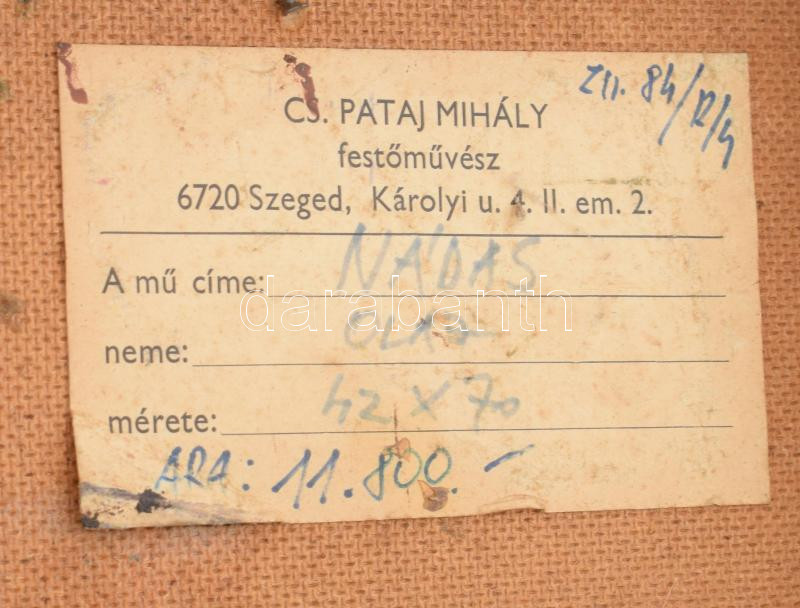 Zsü. 84/12/4
CS. PATAJ MIHÁLY
festőművész
6720 Szeged, Károlyi u. 4. II. em. 2.
A mű címe: NÁDAS
neme: OLAJ
mérete: 42 x 70
ÁRA: 11.800.-
darabanth